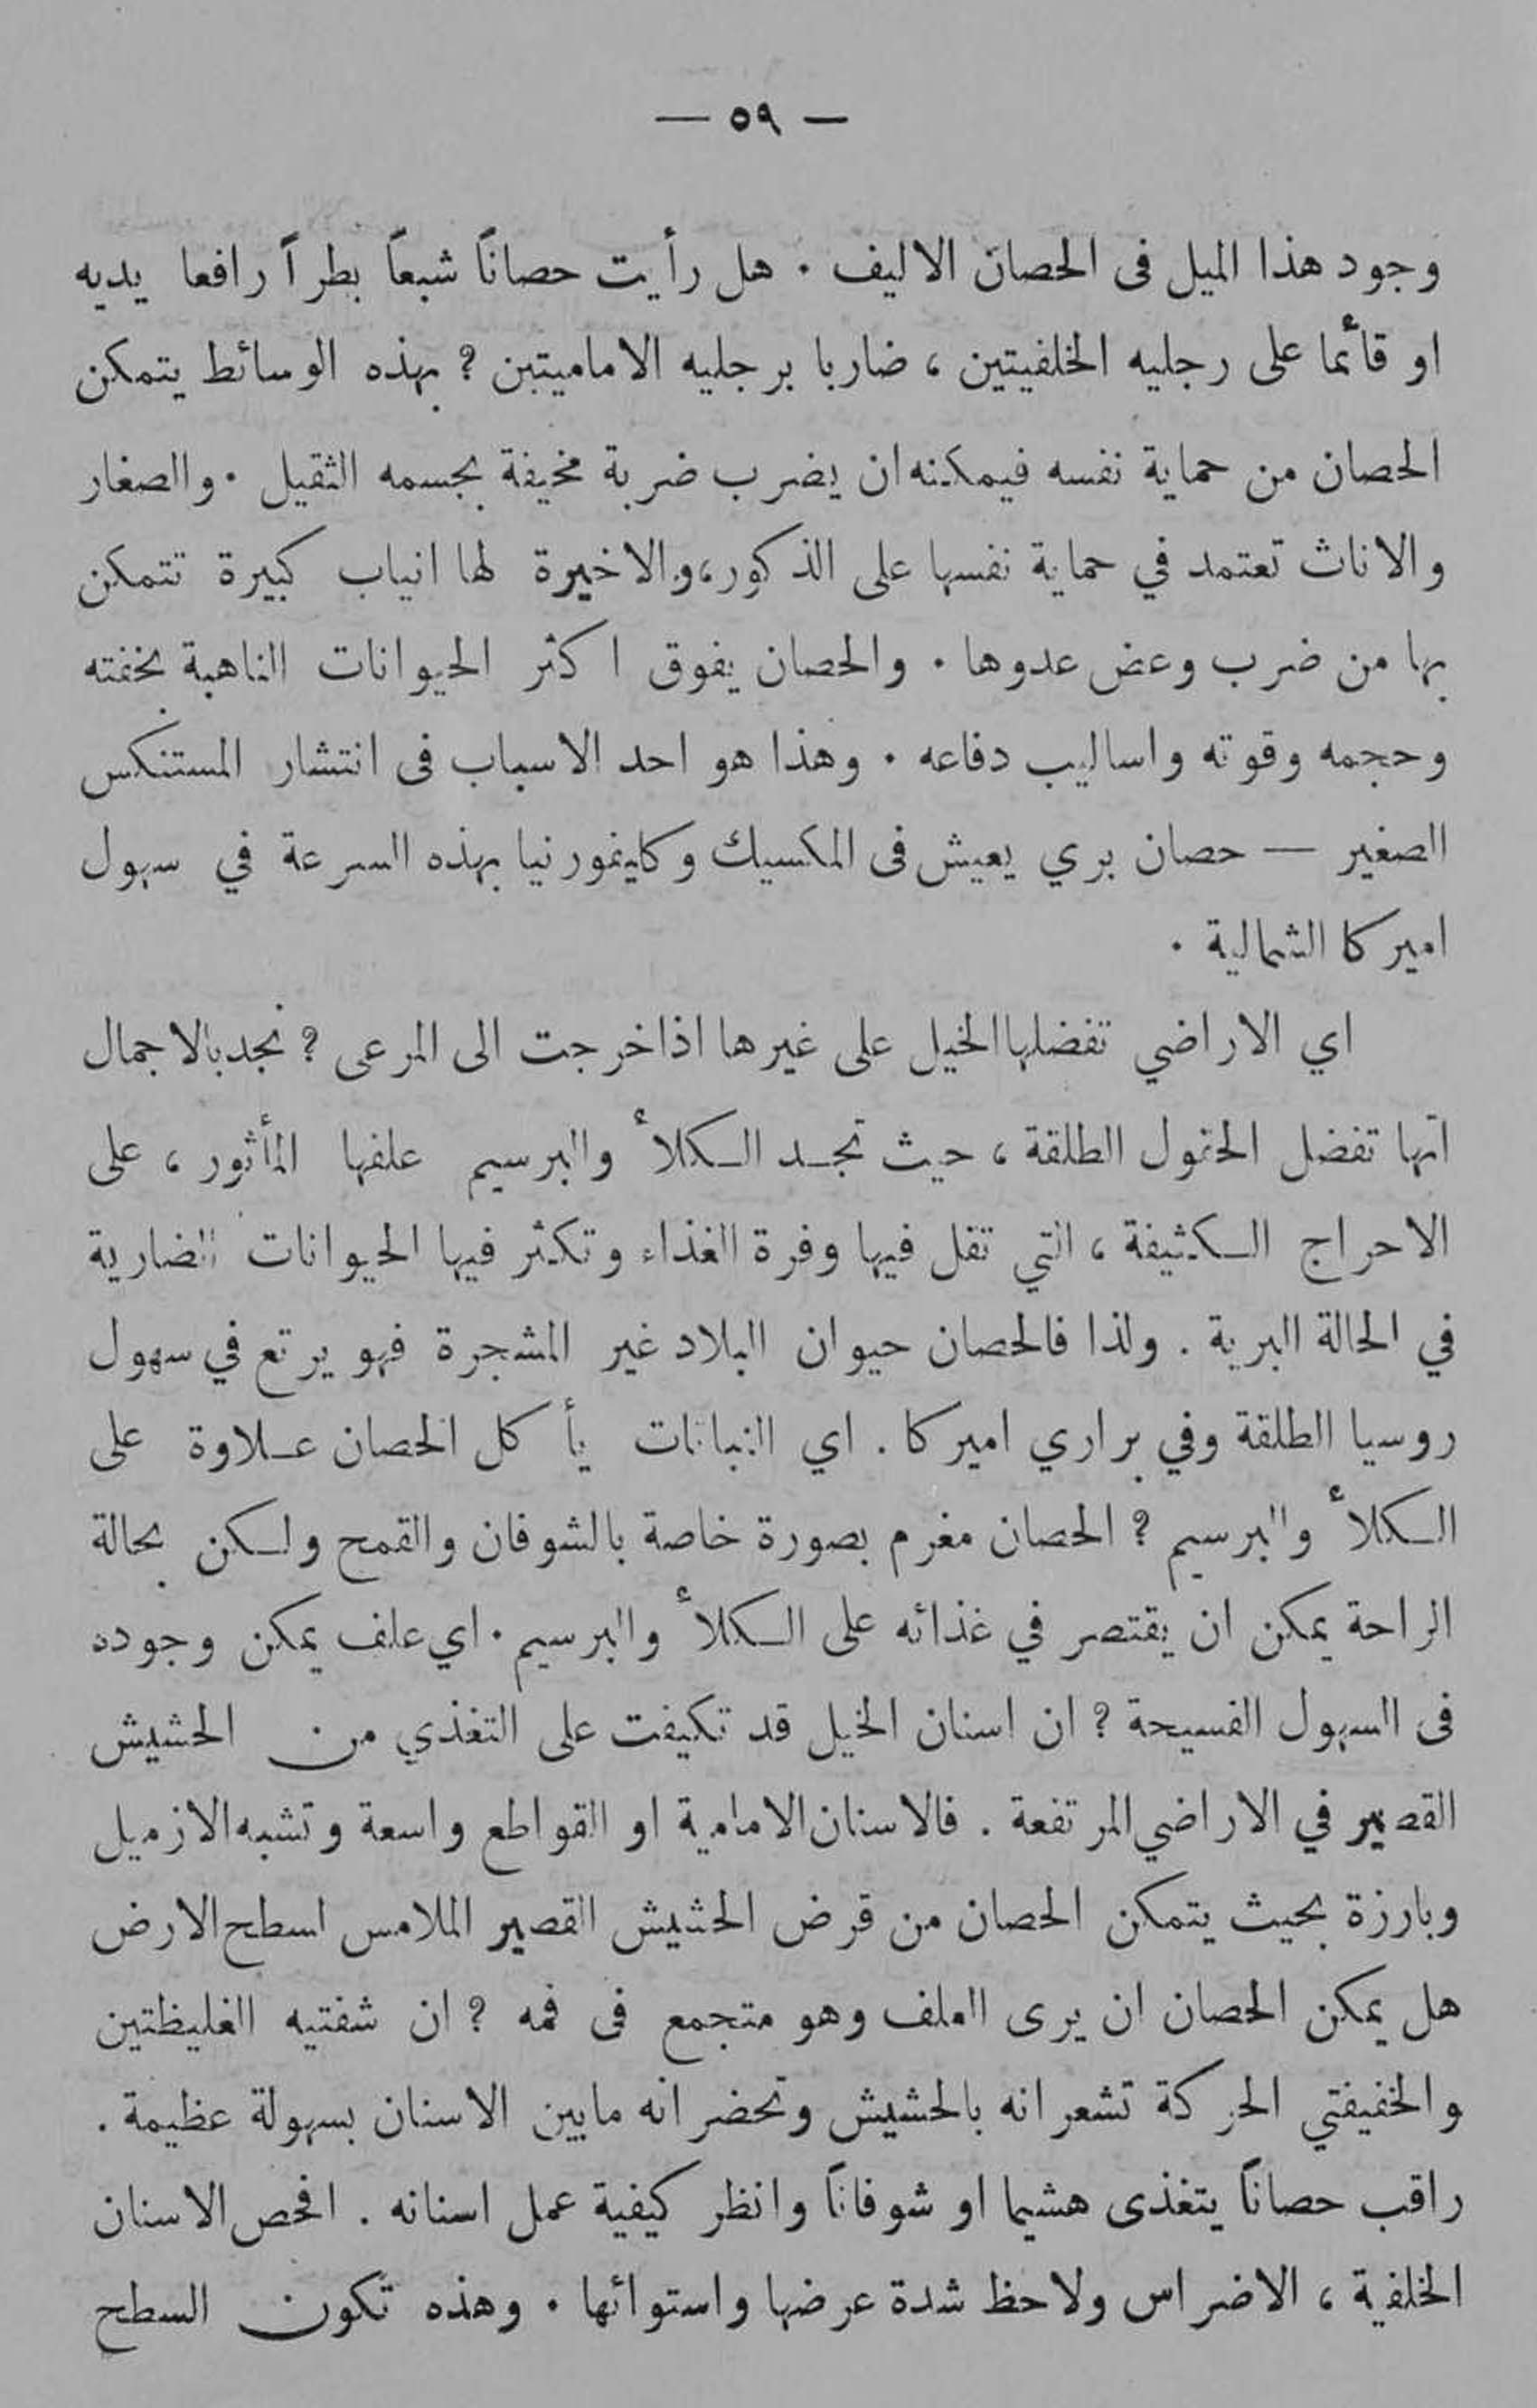 — ٥٩ —
وجود هذا الميل فى الحصان الاليف . هل رأيت حصاناً شبعاً بطراً رافعا يديه
او قائما على رجليه الخلفيتين ، ضاربا برجليه الاماميتين ؟ بهذه الوسائط يتمكن
الحصان من حماية نفسه فيمكنه ان يضرب ضربة مخيفة بجسمه الثقيل . والصغار
والاناث تعتمد في حماية نفسها على الذكور، والاخيرة لها انياب كبيرة تتمكن
بها من ضرب وعض عدوها . والحصان يفوق اكثر الحيوانات الناهبة بخفته
وحجمه وقوته واساليب دفاعه . وهذا هو احد الاسباب فى انتشار المستنكس
الصغير — حصان بري يعيش فى المكسيك وكليفورنيا بهذه السرعة في سهول
اميركا الشمالية .
اي الاراضي تفضلها الخيل على غيرها اذا خرجت الى المرعى ؟ نجد بالاجمال
انها تفضل الحقول الطلقة ، حيث تجد الكلأ والبرسيم علفها المأثور ، على
الاحراج الكثيفة ، التي تقل فيها وفرة الغذاء وتكثر فيها الحيوانات الضارية
في الحالة البرية . ولذا فالحصان حيوان البلاد غير المشجرة فهو يرتع في سهول
روسيا الطلقة وفي براري اميركا . اي النباتات يأكل الحصان علاوة على
الكلأ والبرسيم ؟ الحصان مغرم بصورة خاصة بالشوفان والقمح ولكن بحالة
الراحة يمكن ان يقتصر في غذائه على الكلأ والبرسيم . اي علف يمكن وجوده
فى السهول الفسيحة ؟ ان اسنان الخيل قد تكيفت على التغذي من الحشيش
القصير في الاراضي المرتفعة . فالاسنان الامامية او القواطع واسعة وتشبه الازميل
وبارزة بحيث يتمكن الحصان من قرض الحشيش القصير الملامس لسطح الارض
هل يمكن الحصان ان يرى العلف وهو متجمع فى فمه ؟ ان شفتيه الغليظتين
والخفيفتي الحركة تشعرانه بالحشيش وتحضرانه مابين الاسنان بسهولة عظيمة .
راقب حصاناً يتغذى هشيما او شوفاناً وانظر كيفية عمل اسنانه . افحص الاسنان
الخلفية ، الاضراس ولاحظ شدة عرضها واستوائها . وهذه تكون السطح